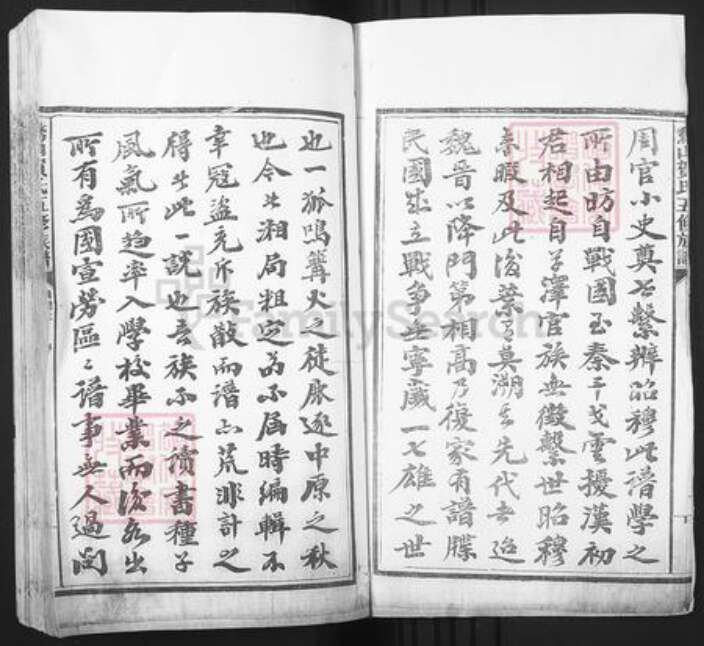 周官小史奠世繫辨昭穆此譜學之
所由昉自戰國至秦干戈雲擾漢初
君相起自草澤官族無徵繫世昭穆
未暇及此後葉已莫溯其先代矣迨
魏晉以降門第相高乃復家有譜牒
民國成立戰爭無寧歲一七雄之世
也一狐鳴篝火之徒脈逐中原之秋
也今者湘局粗定苟不屆時編輯不
幸冠盜充斥族散而譜亦荒非計之
得者此一說也吾族不之讀書種子
風氣所趨率入學校畢業而後各出
所有為國宣勞區區譜事無人過問
賀氏五修族譜
FamilySearch